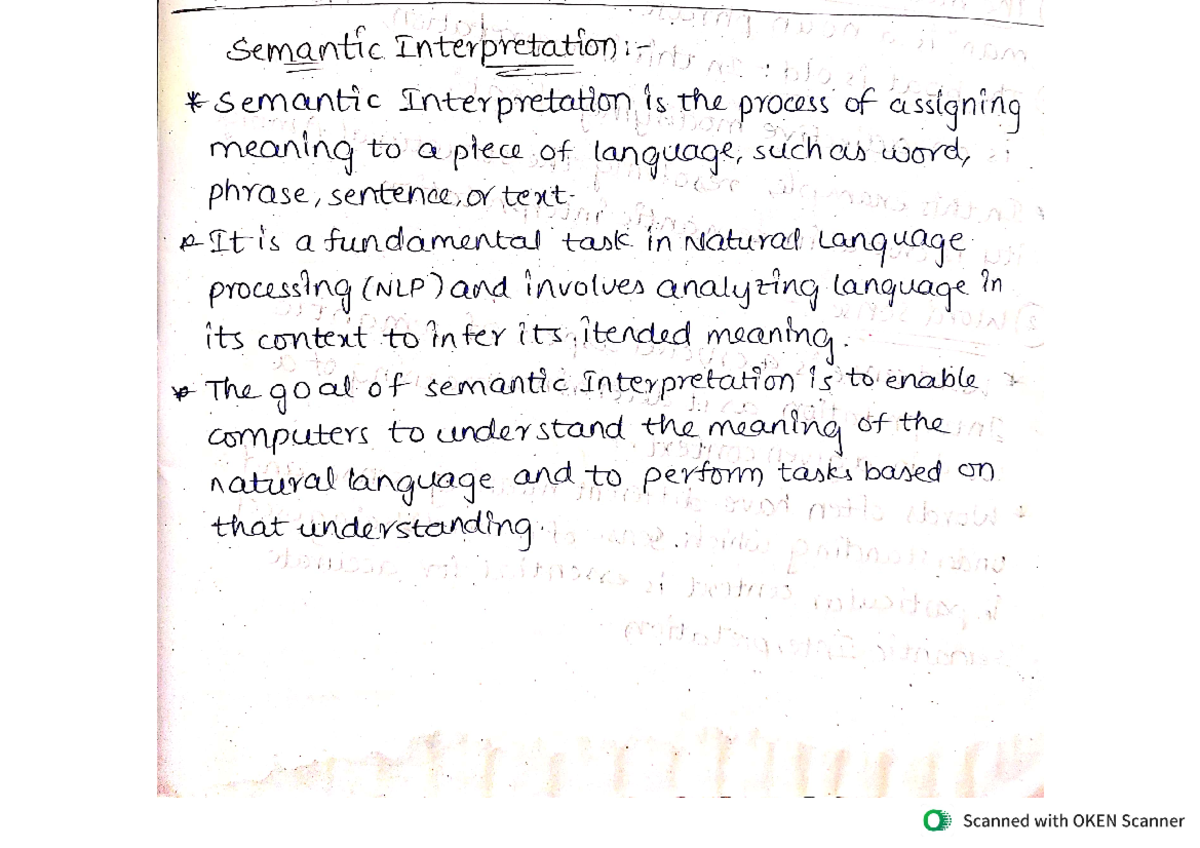 Semantic Interpretation :-
* Semantic Interpretation is the process of assigning
meaning to a piece of language, such as word,
phrase, sentence, or text.
* It is a fundamental task in Natural Language
processing (NLP) and involves analyzing language in
its context to infer its itended meaning.
* The goal of semantic Interpretation is to enable
computers to understand the meaning of the
natural language and to perform tasks based on
that understanding.
Scanned with OKEN Scanner